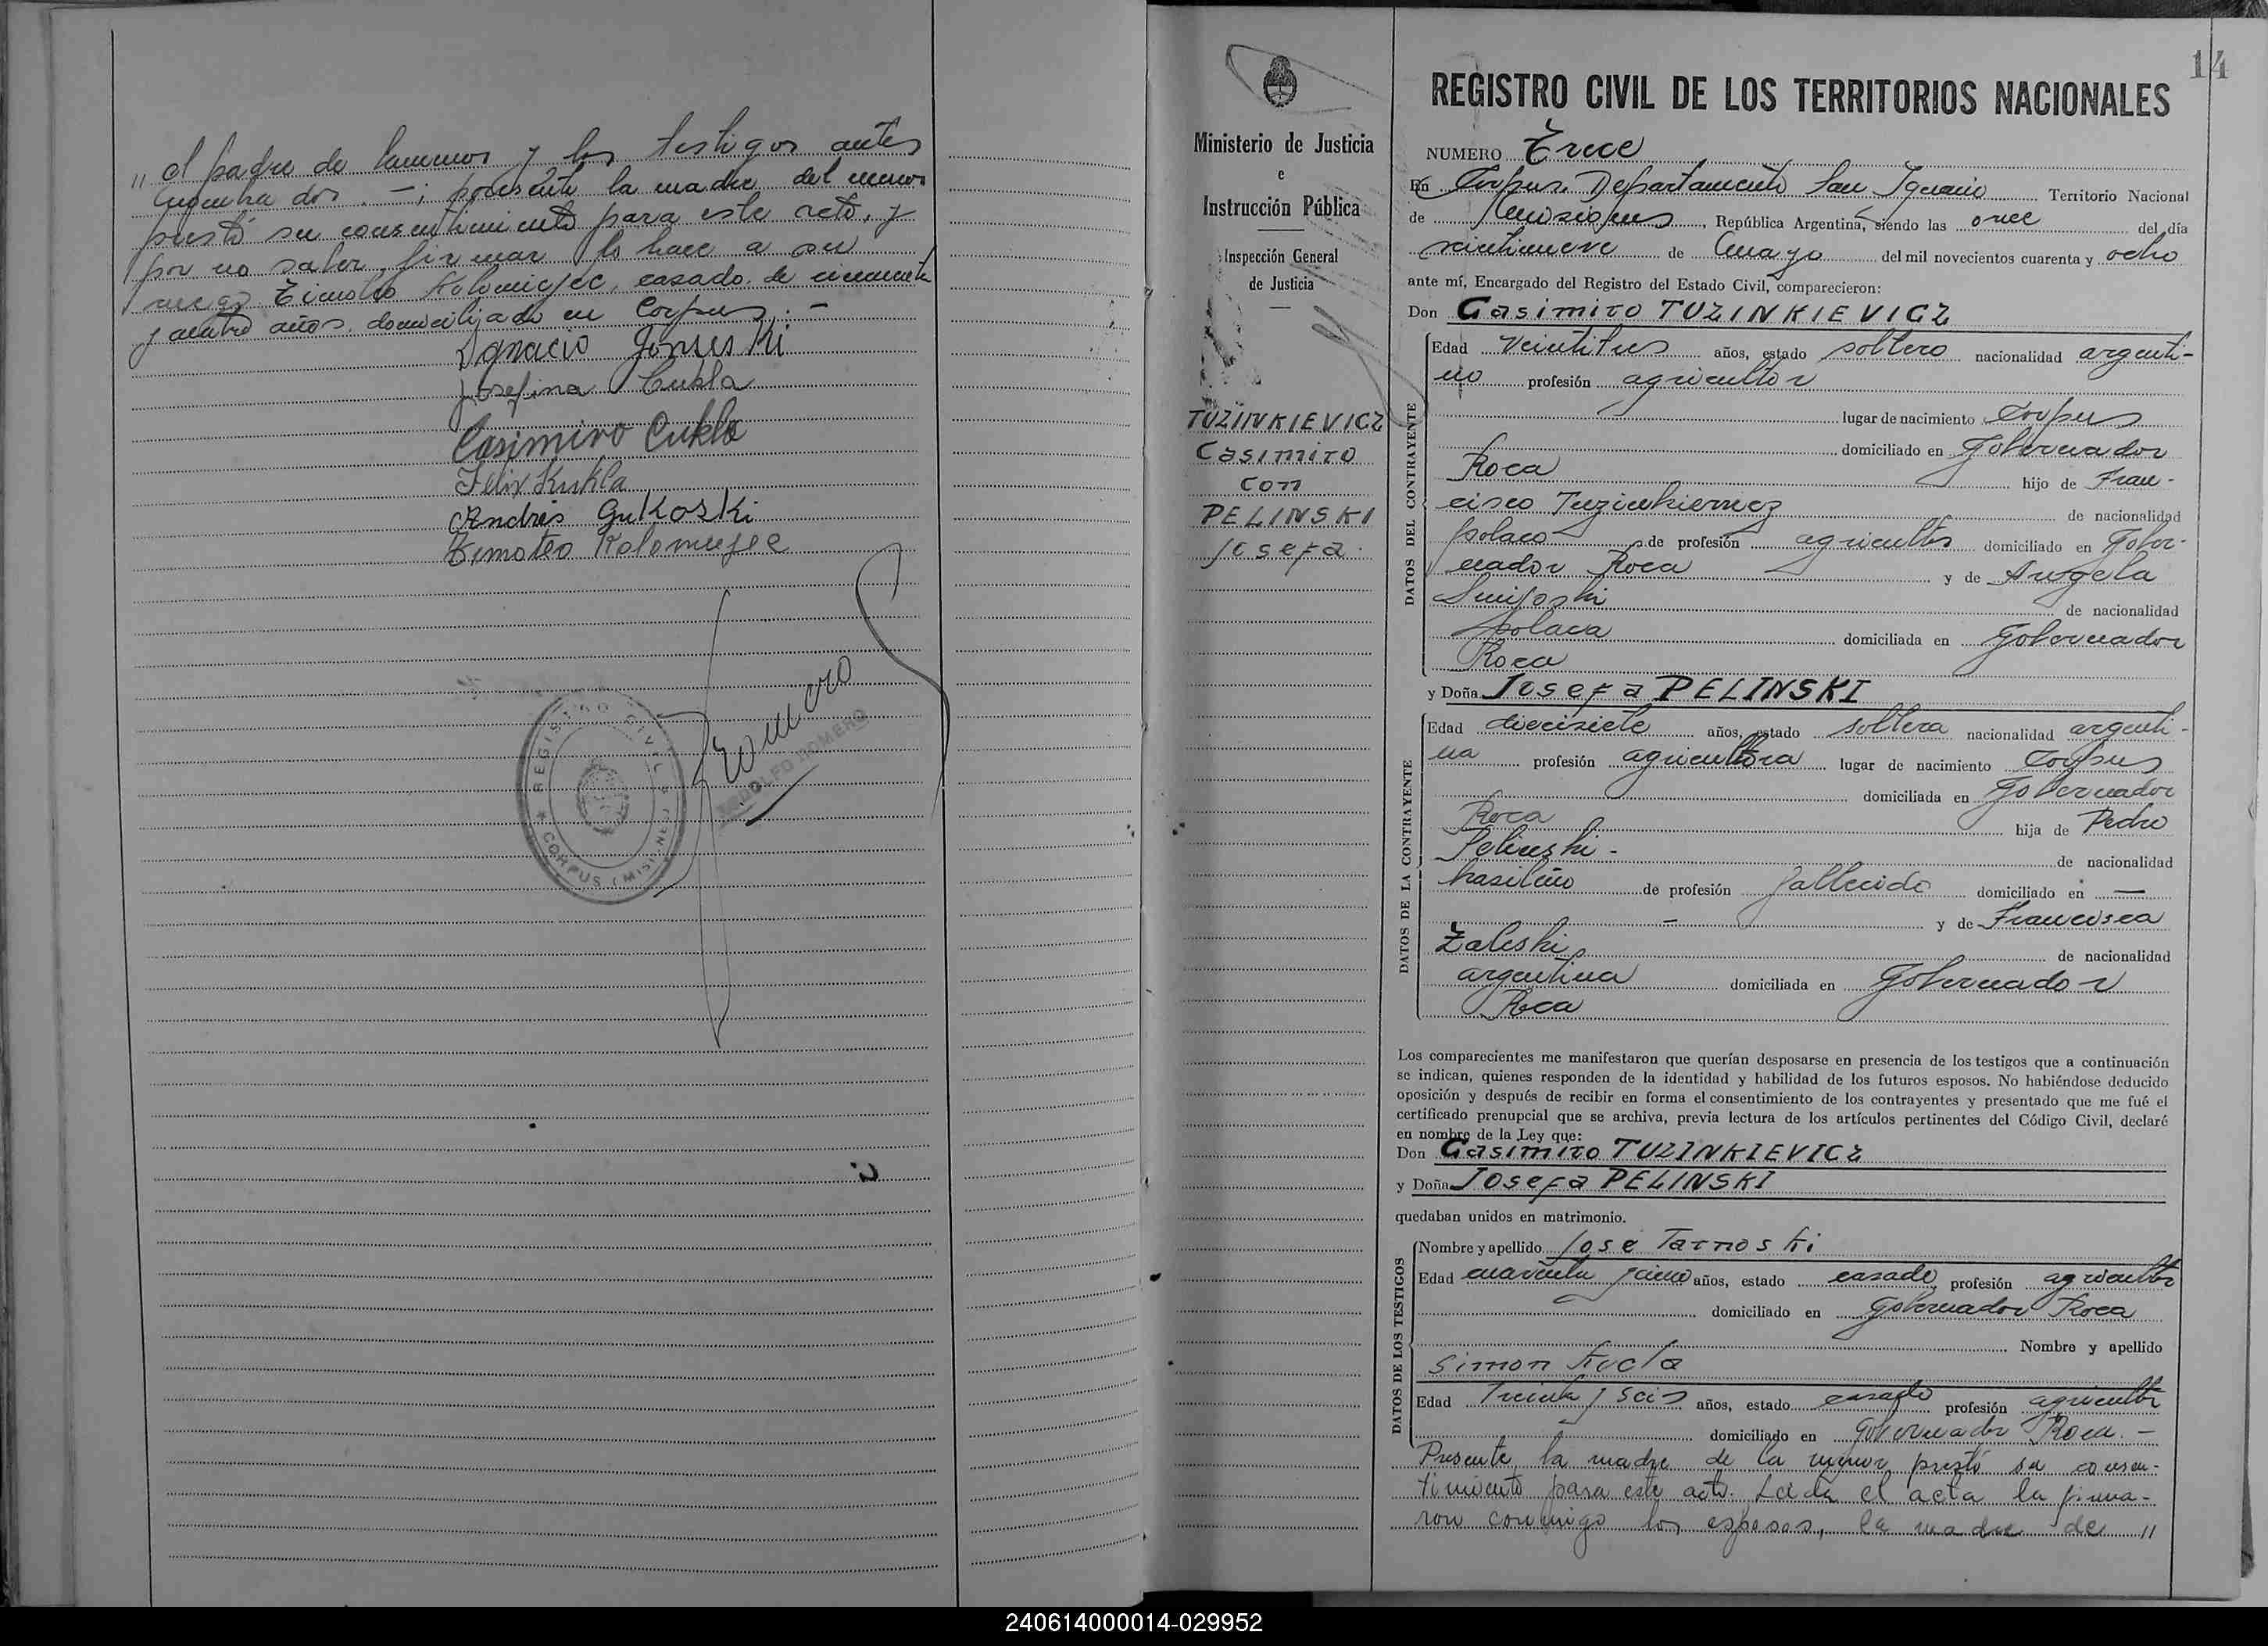 " el padre de la menor y los testigos antes
nombrados. —; presente la madre del menor
prestó su consentimiento para este acto, y
por no saber firmar lo hace a su
ruego Timoteo Kolomiejec, casado, de cincuenta
y cuatro años, domiciliado en Corpus. —
Ignacio
Josefina Cukla
Casimiro Cukla
Felix Kukla
Andrés Gukoski
Timoteo Kolomyjec
Romero
RODOLFO ROMERO
REGISTRO CIVIL
CORPUS (MISIONES)
14
Ministerio de Justicia
e
Instrucción Pública
Inspección General
de Justicia
TUZINKIEVICZ
Casimiro
con
PELINSKI
Josefa.
REGISTRO CIVIL DE LOS TERRITORIOS NACIONALES
NUMERO Trece
En Corpus, Departamento San Ignacio Territorio Nacional
de Misiones, República Argentina, siendo las once del día
veintinueve de Mayo del mil novecientos cuarenta y ocho
ante mí, Encargado del Registro del Estado Civil, comparecieron:
Don Casimiro TUZINKIEVICZ
DATOS DEL CONTRAYENTE
Edad veintitres años, estado soltero nacionalidad argenti-
no profesión agricultor
lugar de nacimiento Corpus
domiciliado en Gobernador
Roca hijo de Fran-
cisco Tuzinkiewicz de nacionalidad
polaco de profesión agricultor domiciliado en Gober-
nador Roca y de Angela
de nacionalidad
polaca domiciliada en Gobernador
Roca
y Doña Josefa PELINSKI
DATOS DE LA CONTRAYENTE
Edad diecisiete años, estado soltera nacionalidad argenti-
na profesión agricultora lugar de nacimiento Corpus
domiciliada en Gobernador
Roca hija de Pedro
Pelinski - de nacionalidad
brasileño de profesión fallecido domiciliado en —
— y de Francisca
Zaleski de nacionalidad
argentina domiciliada en Gobernador
Roca
Los comparecientes me manifestaron que querían desposarse en presencia de los testigos que a continuación
se indican, quienes responden de la identidad y habilidad de los futuros esposos. No habiéndose deducido
oposición y después de recibir en forma el consentimiento de los contrayentes y presentado que me fué el
certificado prenupcial que se archiva, previa lectura de los artículos pertinentes del Código Civil, declaré
en nombre de la Ley que:
Don Casimiro TUZINKIEVICZ
y Doña Josefa PELINSKI
quedaban unidos en matrimonio.
DATOS DE LOS TESTIGOS
Nombre y apellido José Tarnoski
Edad cuarenta y cinco años, estado casado profesión agricultor
domiciliado en Gobernador Roca
Nombre y apellido
Simon Kucla
Edad Treinta y seis años, estado casado profesión agricultor
domiciliado en Gobernador Roca. —
Presente la madre de la menor prestó su consen-
timiento para este acto. Leída el acta la firma-
ron conmigo los esposos, la madre de "
240614000014-029952